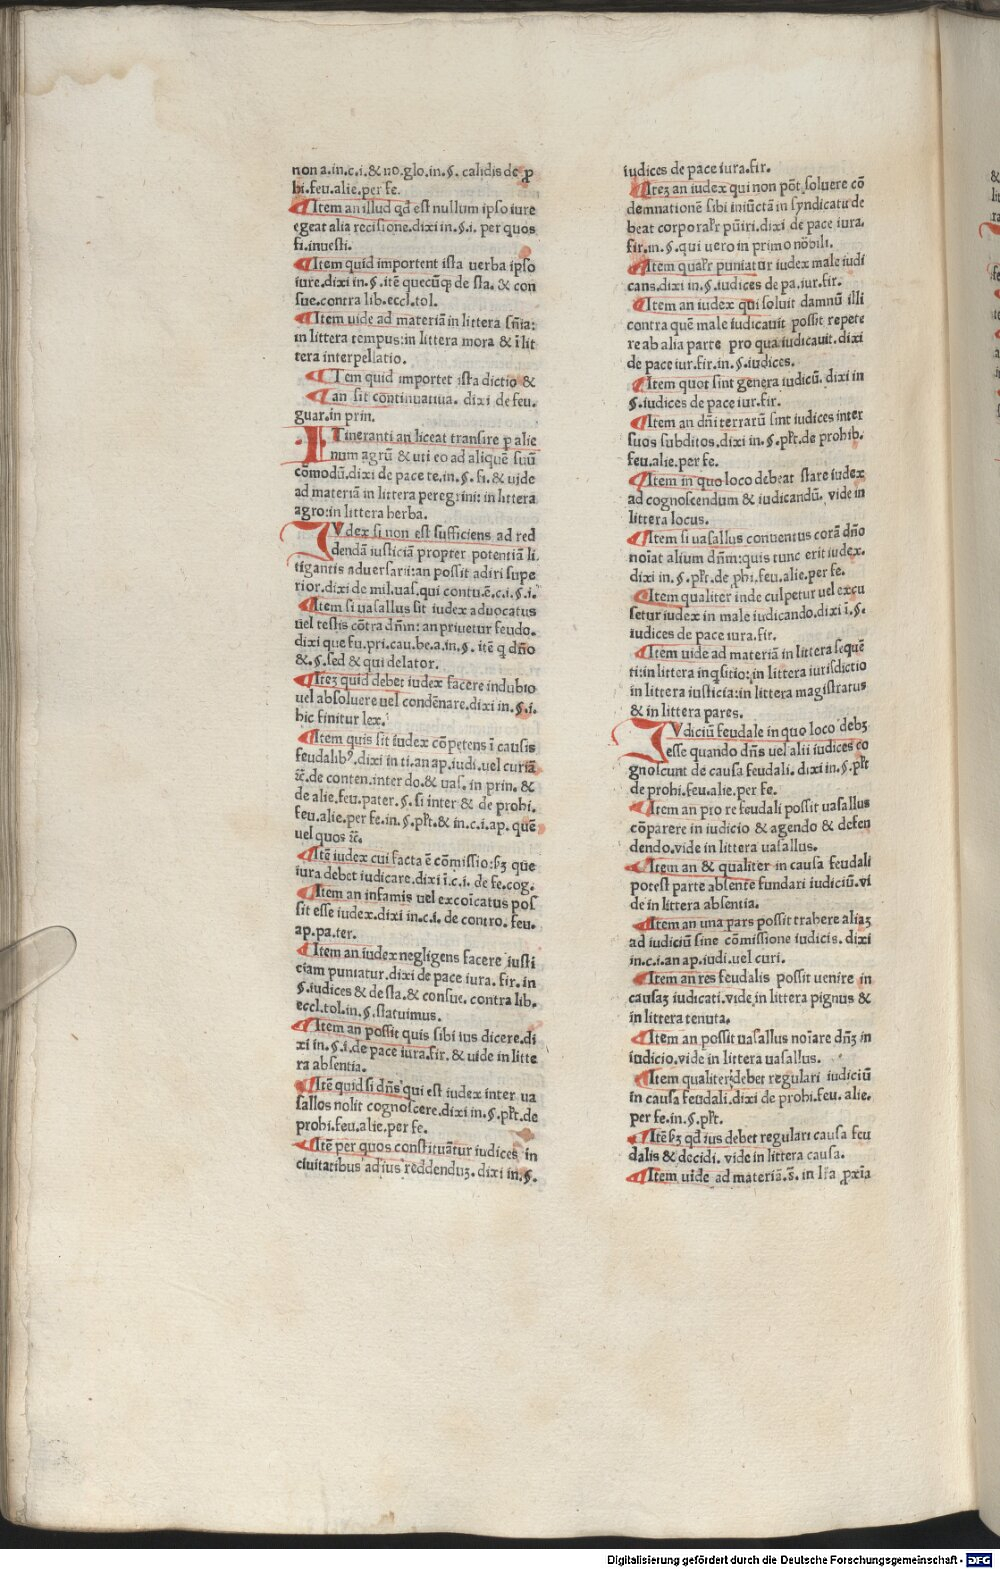 non a.in.c.i.& no.glo.in.§. calidis de ꝓ
hi.feu.alie.per fe.
¶Item an illud qd̄ est nullum ipso iure
egeat alia recisione.dixi in.§.i. per quos
fi.inuesti.
¶Item quid importent ista uerba ipso
iure.dixi in.§.itē quecūqꝫ de sta. & con
sue.contra lib.eccl.tol.
¶Item uide ad materiā in littera sn̄ia:
in littera tempus:in littera mora & ī lit
tera interpellatio.
¶Tem quid importet ista dictio &
¶an sit continuatiua. dixi de feu.
guar.in prin.
ITineranti an liceat transire ꝑ alie
num agrū & uti eo ad aliquē suū
cōmodū.dixi de pace te.in.§.fi.& uide
ad materiā in littera peregrini: in littera
agro:in littera herba.
IVdex si non est sufficiens ad red
dendā iusticiā propter potentiā li.
tigantis aduersarii:an possit adiri supe
rior.dixi de mil.uas.qui contu.ē.c.i.§.i.
¶Item si uasallus sit iudex aduocatus
uel testis cōtra dn̄m: an priuetur feudo.
dixi que fu.pri.cau.be.a.in.§. itē q dn̄o
&.§.sed & qui delator.
¶Iteꝫ quid debet iudex facere in dubio
uel absoluere uel condēnare.dixi in.§.i.
hic finitur lex.
¶Item quis sit iudex cōpetens ī causis
feudalibꝰ.dixi in ti.an ap.iudi.uel curiā
⁊c̄.de conten.inter do.& uas. in prin. &
de alie.feu.pater.§.si inter & de prohi.
feu.alie.per fe.in.§.pr̄t.& in.c.i.ap. quē
uel quos ⁊c̄.
¶Itē iudex cui facta ē cōmissio:sꝫ que
iura debet iudicare.dixi ī.c.i. de fe.cog.
¶Item an infamis uel excoīcatus pos
sit esse iudex.dixi in.c.i. de contro. feu.
ap.pa.ter.
¶Item an iudex negligens facere iusti
ciam puniatur.dixi de pace iura. fir. in
§.iudices & de sta.& consue. contra lib.
eccl.tol.in.§.statuimus.
¶Item an possit quis sibi ius dicere.di
xi in.§.i.de pace iura.fir. & uide in litte
ra absentia.
¶Itē quid si dn̄s qui est iudex inter ua
sallos nolit cognoscere.dixi in.§.pr̄t.de
prohi.feu.alie.per fe.
¶Itē per quos constituātur iudices in
ciuitatibus ad ius reddenduꝫ. dixi in.§.
iudices de pace iura.fir.
¶Iteꝫ an iudex qui non pōt soluere cō
demnationē sibi iniūctā in syndicatu de
beat corporalr̄ pūiri.dixi de pace iura.
fir.in.§.qui uero in primo nōbili.
¶Item qualr̄ puniatur iudex male iudi
cans.dixi in.§.iudices de pa.iur.fir.
¶Item an iudex qui soluit damnū illi
contra quē male iudicauit possit repete
re ab alia parte pro qua iudicauit.dixi
de pace iur.fir.in.§.iudices.
¶Item quot sint genera iudicū. dixi in
§.iudices de pace iur.fir.
¶Item an dn̄i terrarū sint iudices inter
suos subditos.dixi in.§.pr̄t.de prohib.
feu.alie.per fe.
¶Item in quo loco debeat stare iudex
ad cognoscendum & iudicandū. vide in
littera locus.
¶Item si uasallus conuentus corā dn̄o
noīat alium dn̄m:quis tunc erit iudex.
dixi in.§.pr̄t.de ꝓhi.feu.alie.per fe.
¶Item qualiter inde culpetur uel excu
setur iudex in male iudicando.dixi ī.§.
iudices de pace iura.fir.
¶Item uide ad materiā in littera sequē
ti:in littera inqsitio:in littera iurisdictio
in littera iusticia:in littera magistratus
& in littera pares.
IVdiciū feudale in quo loco debꝫ
esse quando dn̄s uel alii iudices co
gnoscunt de causa feudali. dixi in.§.pr̄t
de prohi.feu.alie.per fe.
¶Item an pro re feudali possit uasallus
cōparere in iudicio & agendo & defen
dendo.vide in littera uasallus.
¶Item an & qualiter in causa feudali
potest parte absente fundari iudiciū.vi
de in littera absentia.
¶Item an una pars possit trahere aliaꝫ
ad iudiciū sine cōmissione iudicis. dixi
in.c.i.an ap.iudi.uel curi.
¶Item an res feudalis possit uenire in
causaꝫ iudicati.vide in littera pignus &
in littera tenuta.
¶Item an possit uasallus noīare dn̄ꝫ in
iudicio.vide in littera uasallus.
¶Item qualiter debet regulari iudiciū
in causa feudali.dixi de prohi.feu. alie.
per fe.in.§.pr̄t.
¶Itē sꝫ qd̄ ius debet regulari causa feu
dalis & decidi. vide in littera causa.
¶Item uide ad materiā.s̄. in lr̄a ꝓxīa
Digitalisierung gefördert durch die Deutsche Forschungsgemeinschaft - DFG